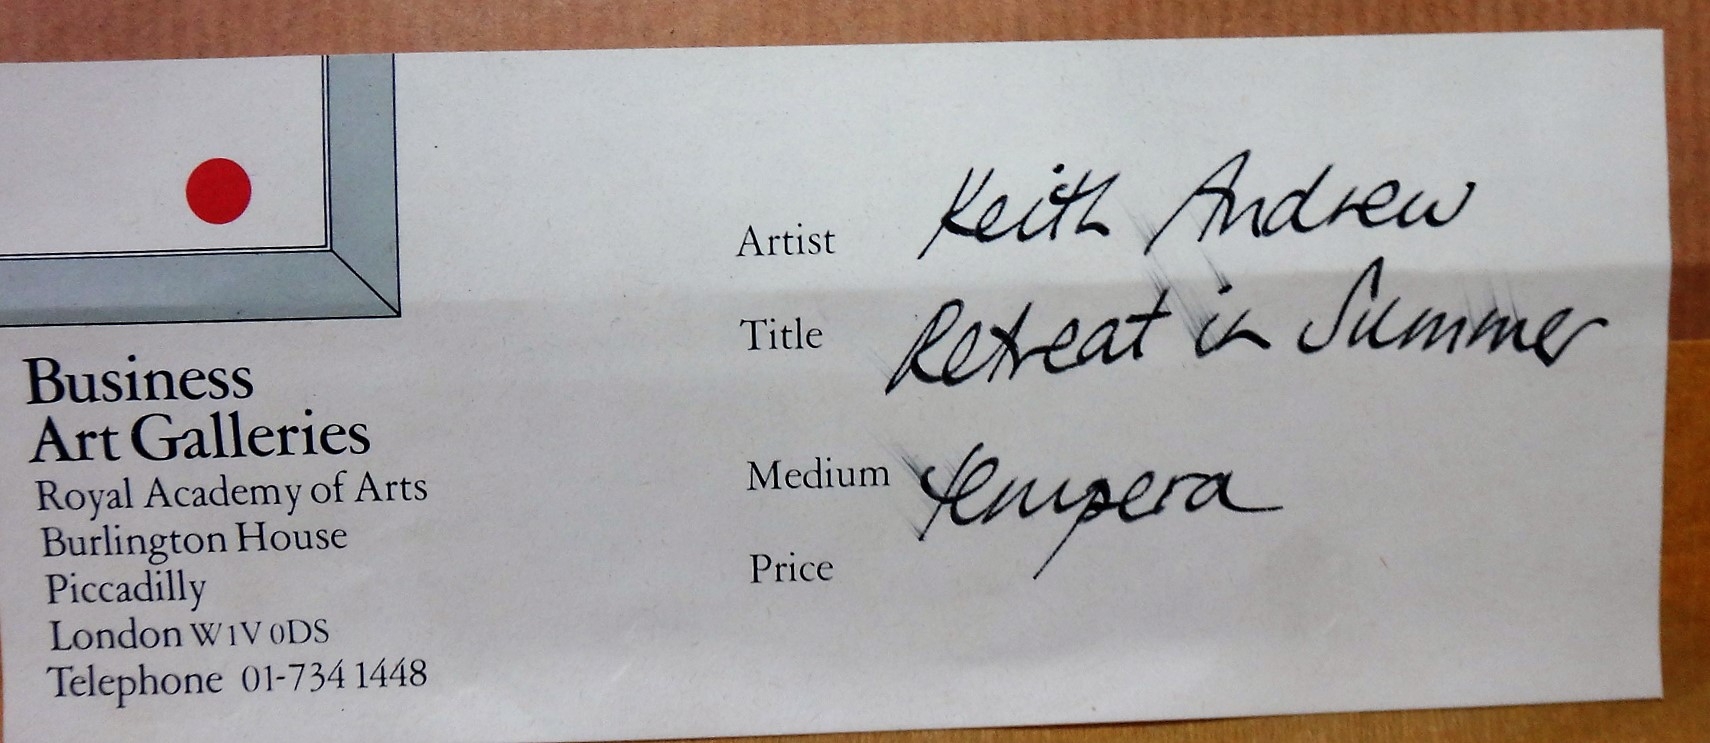 Business
Art Galleries
Royal Academy of Arts
Burlington House
Piccadilly
London W1V 0DS
Telephone 01-734 1448
Artist Keith Andrew
Title Retreat in Summer
Medium tempera
Price